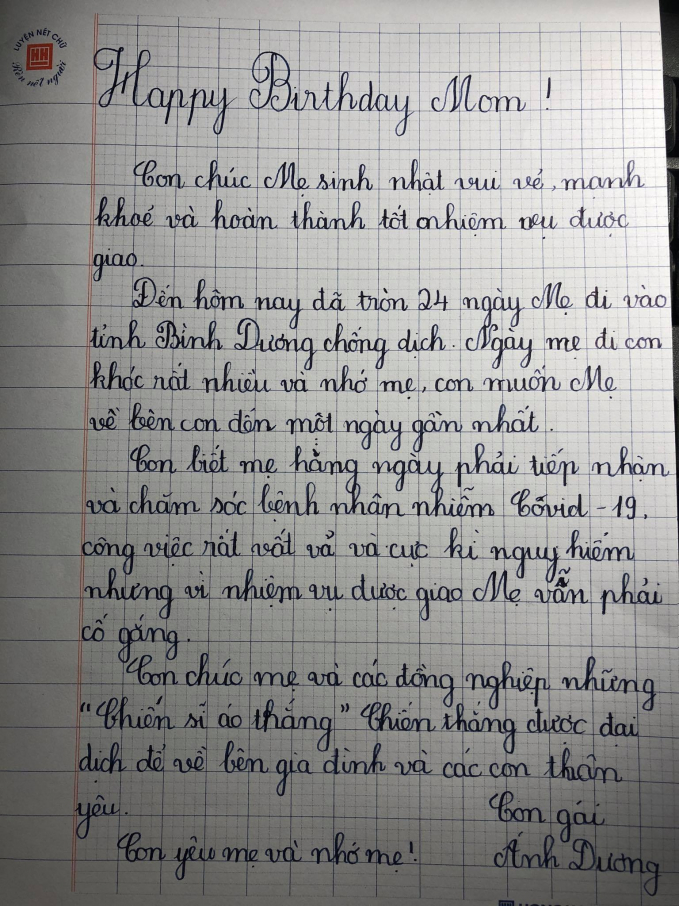 LUYỆN NÉT CHỮ
HH
Rèn nết người
Happy Birthday Mom !
Con chúc Mẹ sinh nhật vui vẻ, mạnh
khoẻ và hoàn thành tốt nhiệm vụ được
giao.
Đến hôm nay đã tròn 24 ngày Mẹ đi vào
tỉnh Bình Dương chống dịch. Ngày mẹ đi con
khóc rất nhiều và nhớ mẹ, con muốn Mẹ
về bên con đón một ngày gần nhất.
Con biết mẹ hằng ngày phải tiếp nhận
và chăm sóc bệnh nhân nhiễm Cõvid - 19,
công việc rất vất vả và cực kì nguy hiểm
nhưng vì nhiệm vụ được giao Mẹ vẫn phải
cố gắng.
Con chúc mẹ và các đồng nghiệp những
"Chiến sĩ áo thắng" Chiến thắng được đại
dịch để về bên gia đình và các con thân
yêu.
Con gái
Con yêu mẹ và nhớ mẹ!
Ánh Dương